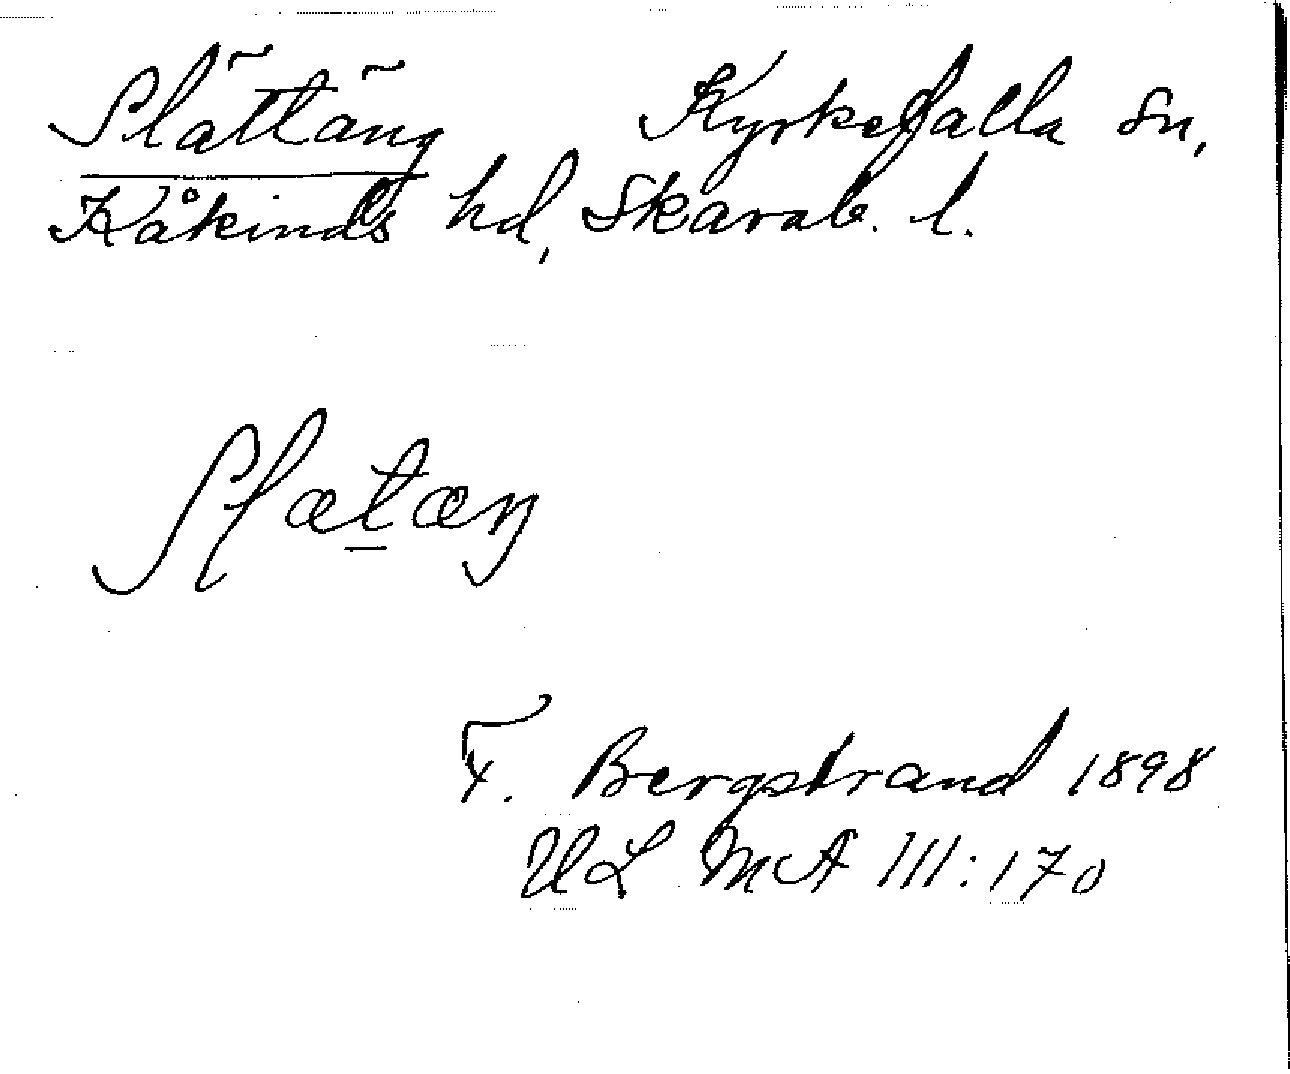 Slättäng Kyrkefalla sn,
Kåkinds hd, Skarab. l.
Slætæŋ
F. Bergstrand 1898
ULMA 111:170